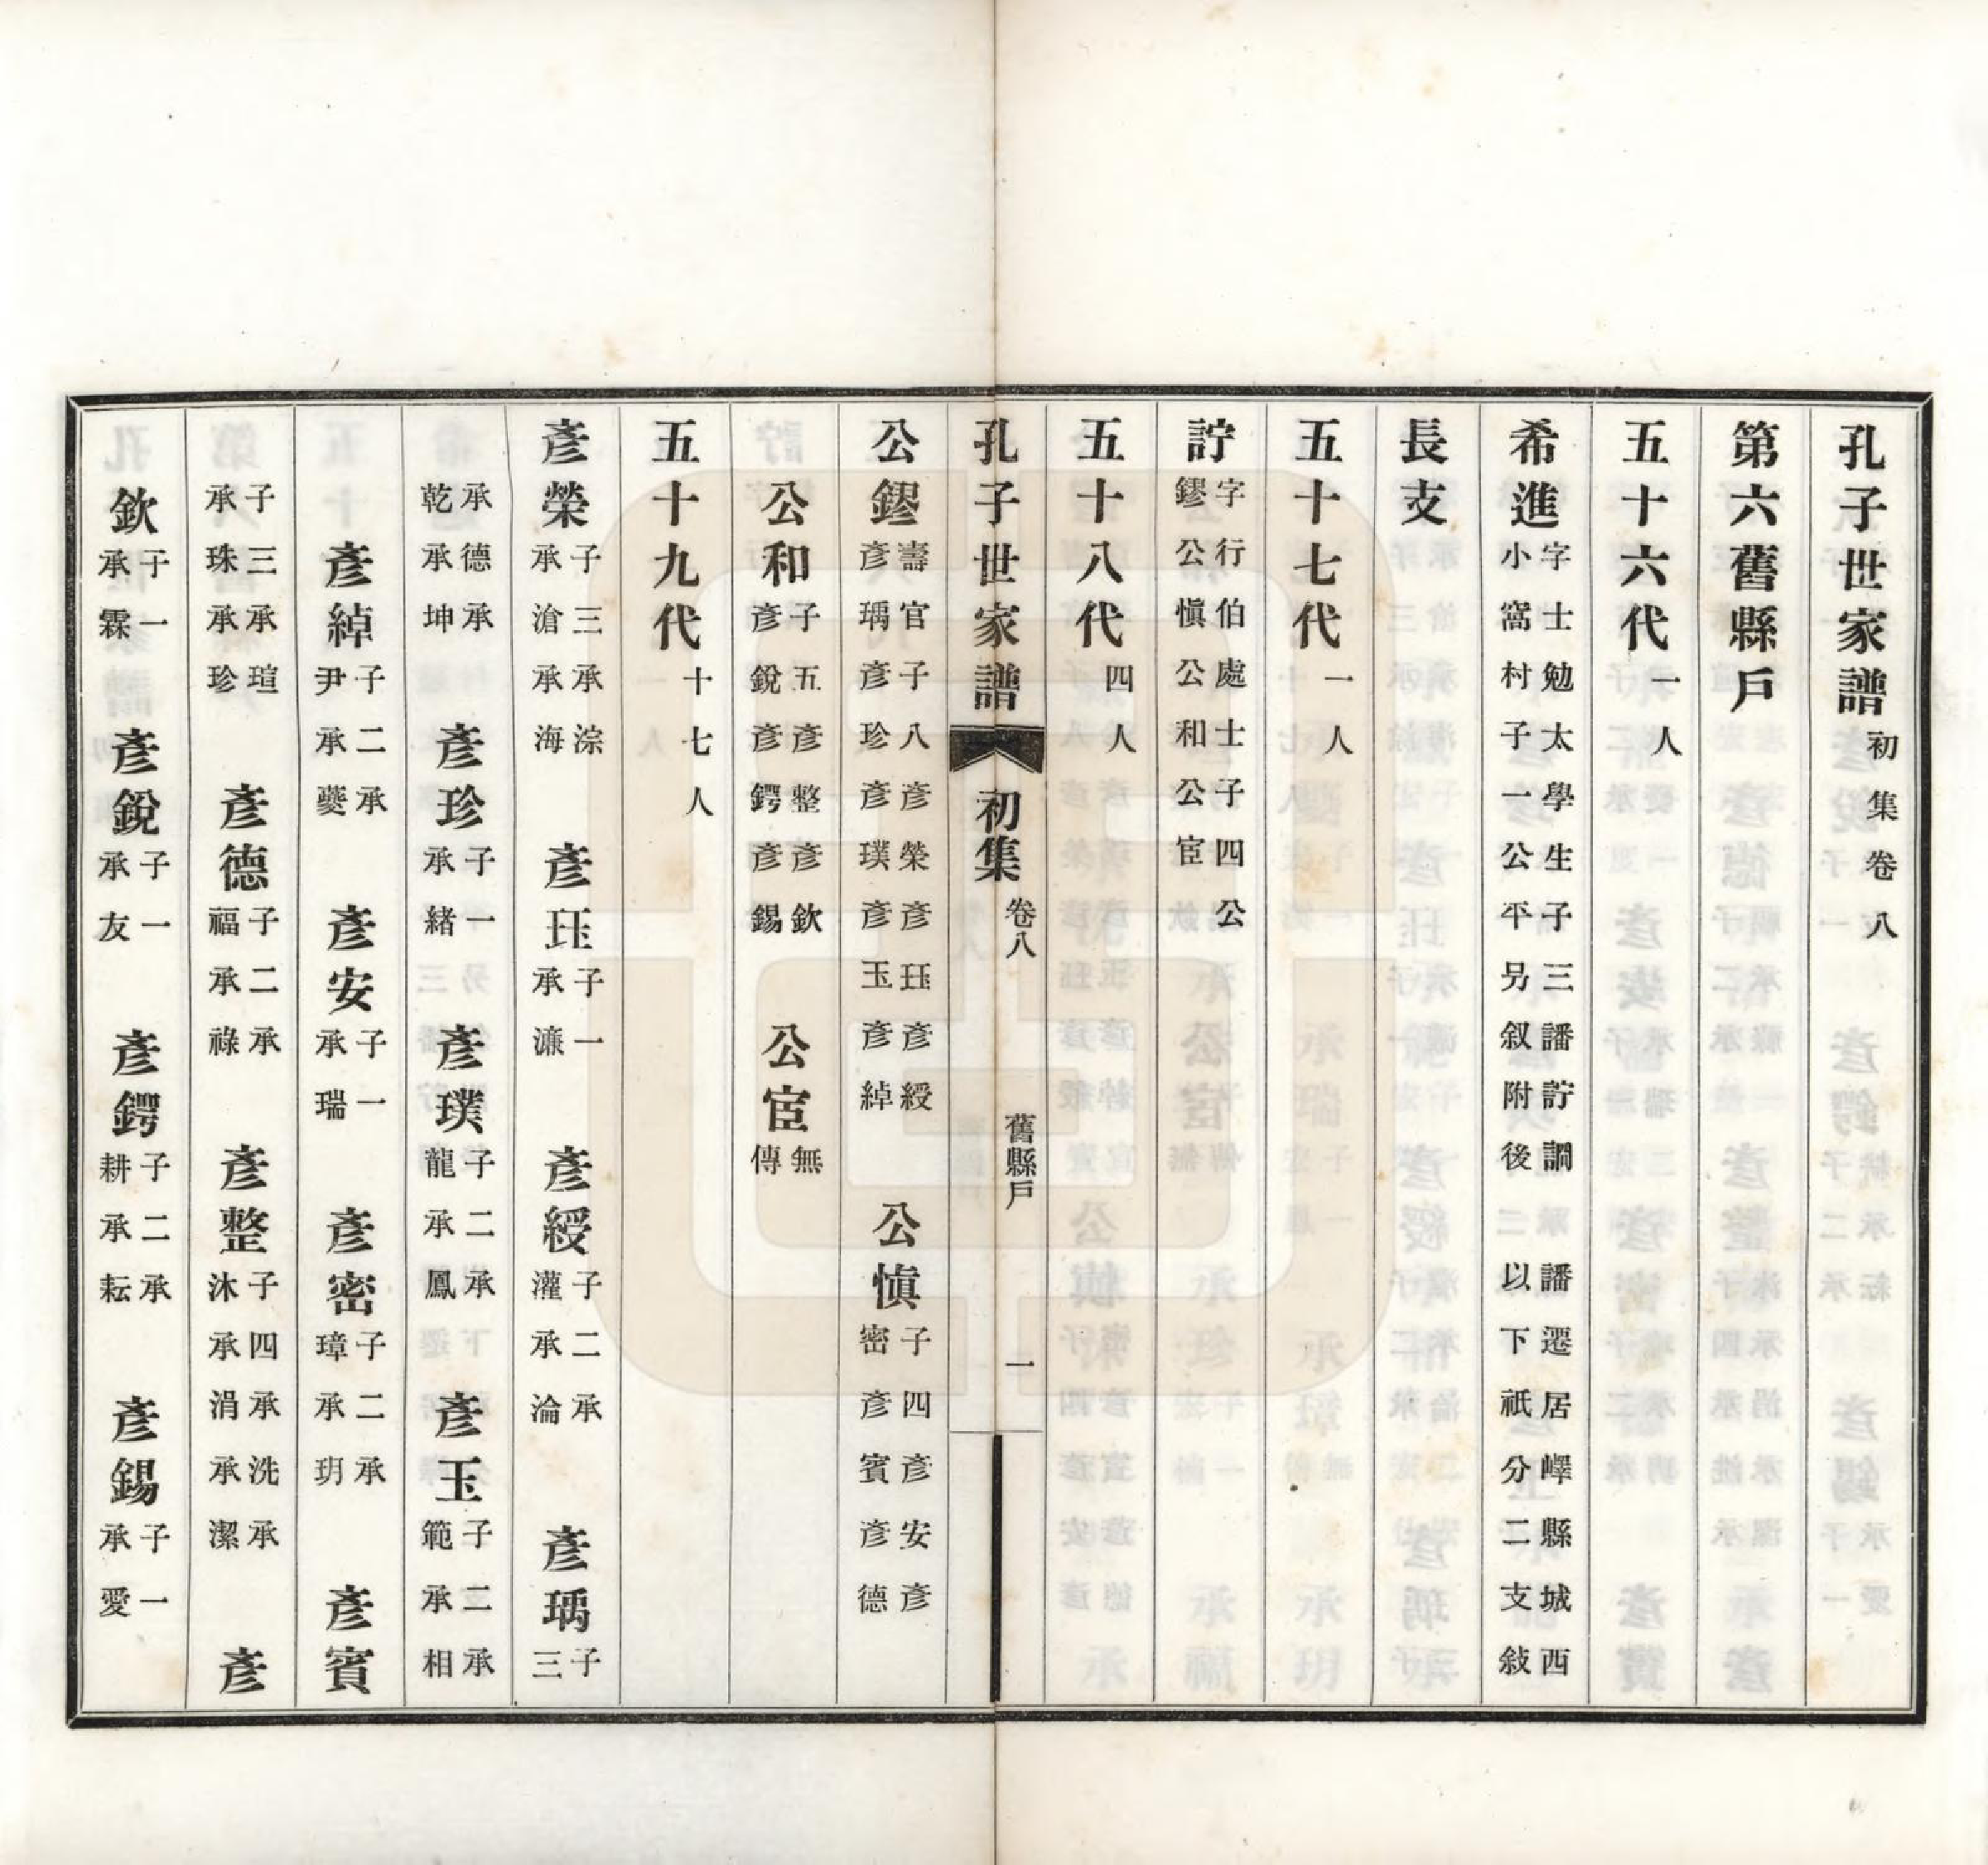 孔子世家譜初集卷八
第六舊縣戶
五十六代一人
希進字士勉太學生子三譒詝調小窩村子一公平另叙附後譒遷居嶧縣城西以下祇分二支敍
長支
五十七代一人
詝字行伯處士子四公鏐公愼公和公宦
五十八代四人
孔子世家譜 初集 卷八 舊縣戶 一
公鏐壽官子八彥榮彥珏彥綬彥瑀彥珍彥璞彥玉彥綽 公愼子四彥安彥密彥賓彥德
公和子五彥整彥欽彥銳彥鍔彥錫 公宦無傳
五十九代十七人
彥榮子三承淙承滄承海 彥珏子一承濂 彥綬子二承灌承淪 彥瑀子三
承德承乾承坤 彥珍子一承緒 彥璞子二承龍承鳳 彥玉子二承範承相
彥綽子二承尹承夔 彥安子一承瑞 彥密子二承璋承玥 彥賓
子三承瑄承珠承珍 彥德子二承福承祿 彥整子四承洗承沐承涓承潔 彥
欽子一承霖 彥銳子一承友 彥鍔子二承耕承耘 彥錫子一承愛